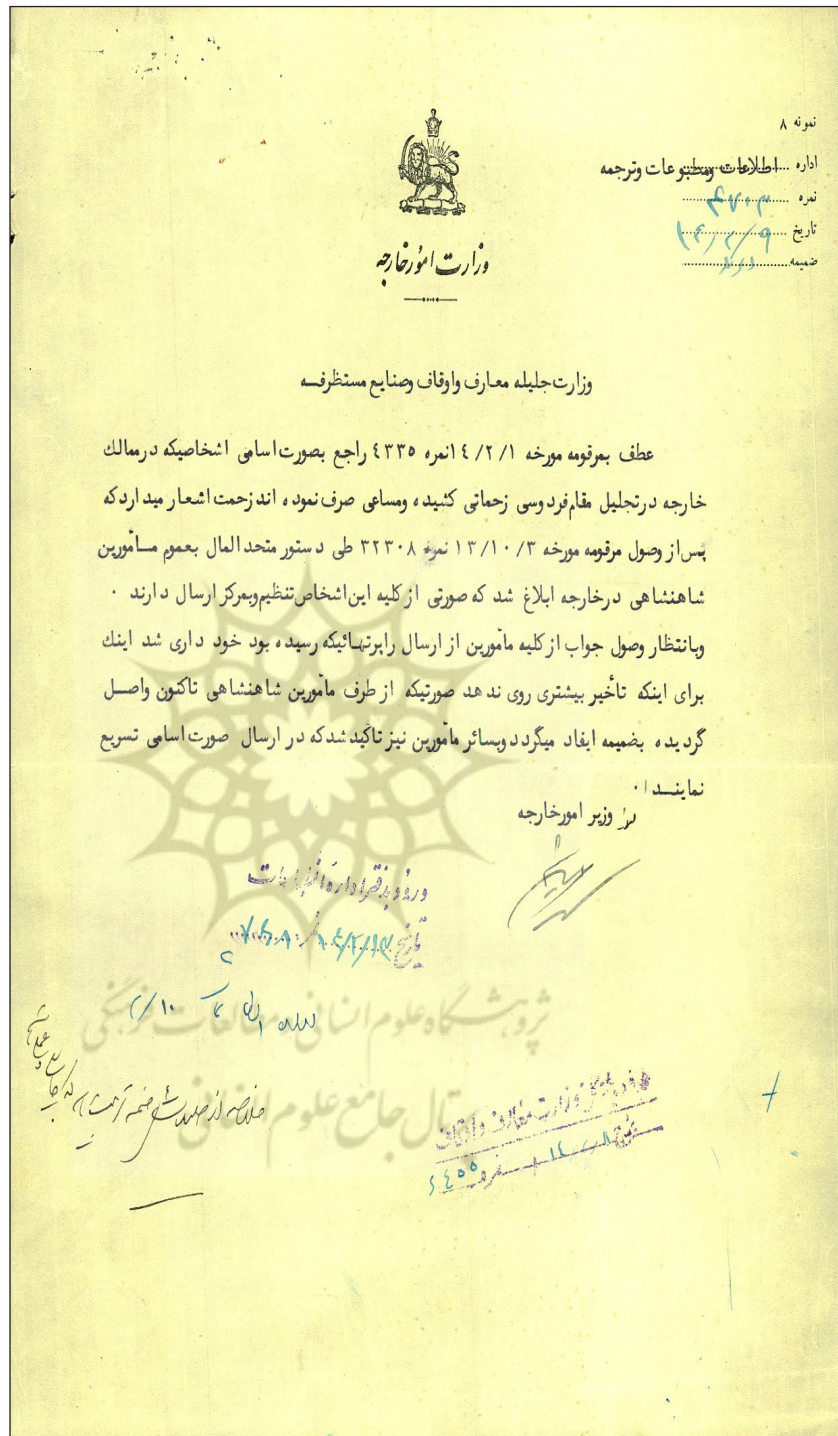 نمونه ۸
اداره اطلاعات ومطبوعات وترجمه
نمره ۴۷۰۳
تاریخ ۱۴/۲/۹
ضمیمه دارد
وزارت امور خارجه
وزارت جلیله معارف واوقاف وصنایع مستظرفـه
عطف بمرقومه مورخه ۱۴/۲/۱ نمره ٤٣٣٥ راجع بصورت اسامی اشخاصیکه درممالك
خارجه درتجلیل مقام فردوسی زحماتی کشیده ومساعی صرف نموده اند زحمت اشعار میدارد که
پس از وصول مرقومه مورخه ۱۳/۱۰/۳ نمره ۳۲۳۰۸ طی دستور متحد المال بعموم مـأمورین
شاهنشاهی درخارجه ابلاغ شد که صورتی از کلیه این اشخاص تنظیم وبمرکز ارسال دارند ۰
وبانتظار وصول جواب از کلیه مأمورین از ارسال راپرتهـائیکه رسیده بود خود داری شد اینك
برای اینکه تأخیر بیشتری روی ندهد صورتیکه از طرف مأمورین شاهنشاهی تاکنون واصـل
گردیده بضمیمه ایفاد میگردد وبسائر مأمورین نیز تاکید شد که در ارسال صورت اسامی تسریع
نماینـد ۰
وزیر امورخارجه
ورود بدفتر اداره انطباعات
تاریخ ۱۴/۲/۱۳
پژوهشگاه علوم انسانی و مطالعات فرهنگی
پرتال جامع علوم انسانی
وزارت معارف و اوقاف